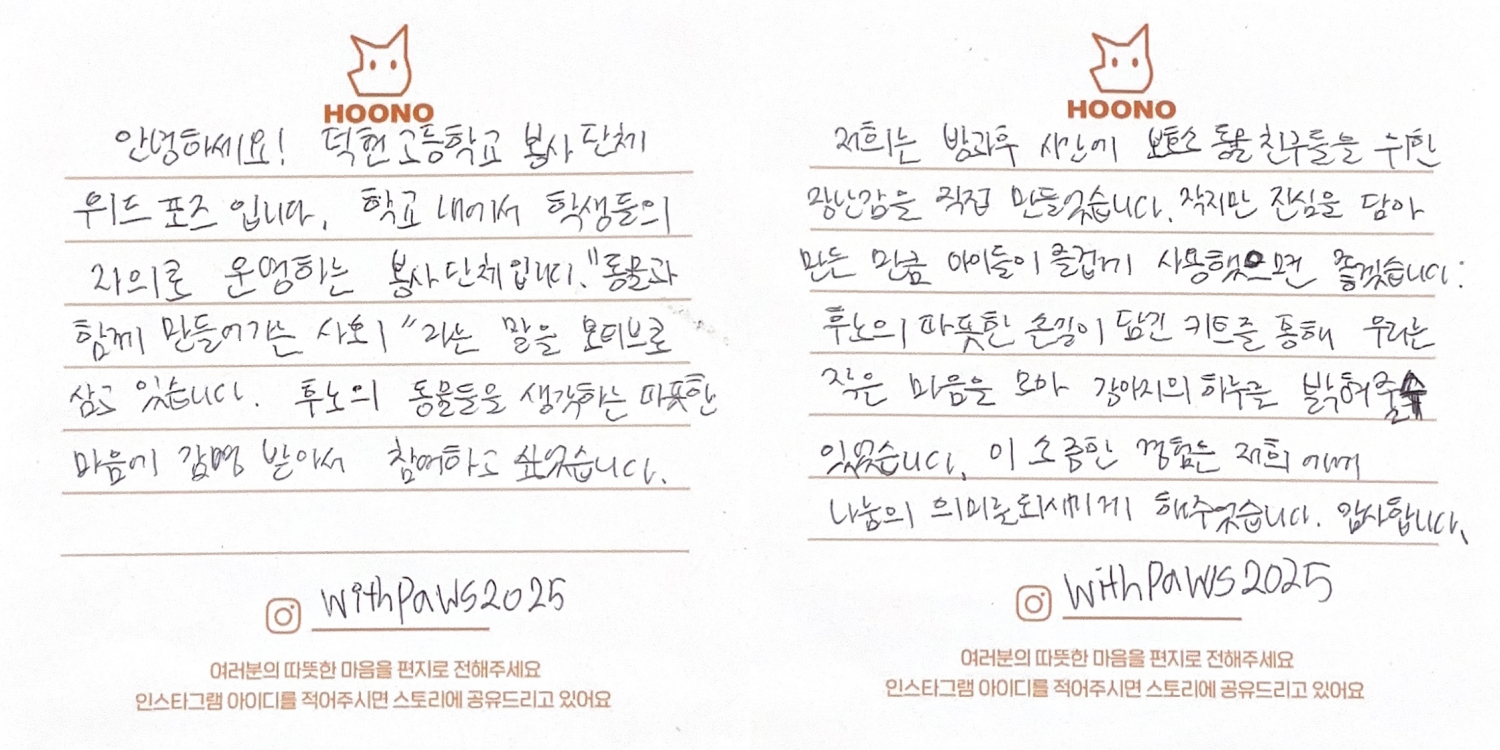 HOONO
안녕하세요! 덕현고등학교 봉사단체
위드포즈입니다. 학교 내에서 학생들의
자의로 운영하는 봉사단체입니다. "동물과
함께 만들어가는 사회"라는 말을 모티브로
삼고 있습니다. 후노의 동물들을 생각하는 따뜻한
마음에 감명 받아서 참여하고 싶었습니다.
withpaws2025
여러분의 따뜻한 마음을 편지로 전해주세요
인스타그램 아이디를 적어주시면 스토리에 공유드리고 있어요
HOONO
저희는 방과후 시간에 보호소 동물 친구들을 위한
장난감을 직접 만들었습니다. 작지만 진심을 담아
만든 만큼 아이들이 즐겁게 사용했으면 좋겠습니다.
후노의 따뜻한 손길이 담긴 키트를 통해 우리는
작은 마음을 모아 강아지의 하루를 밝혀줄 수
있었습니다. 이 소중한 경험은 저희에게
나눔의 의미를 되새기게 해주었습니다. 감사합니다.
withpaws2025
여러분의 따뜻한 마음을 편지로 전해주세요
인스타그램 아이디를 적어주시면 스토리에 공유드리고 있어요